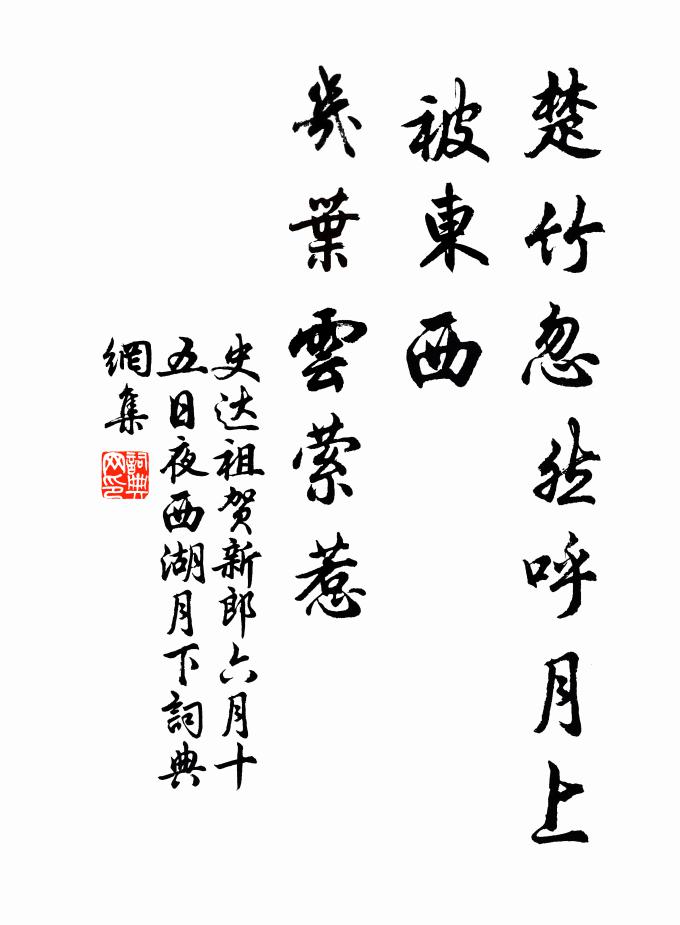 楚竹忽然呼月上
被東西
幾葉雲萦惹
史达祖贺新郎六月十
五日夜西湖月下詞典
網集
詞典网印